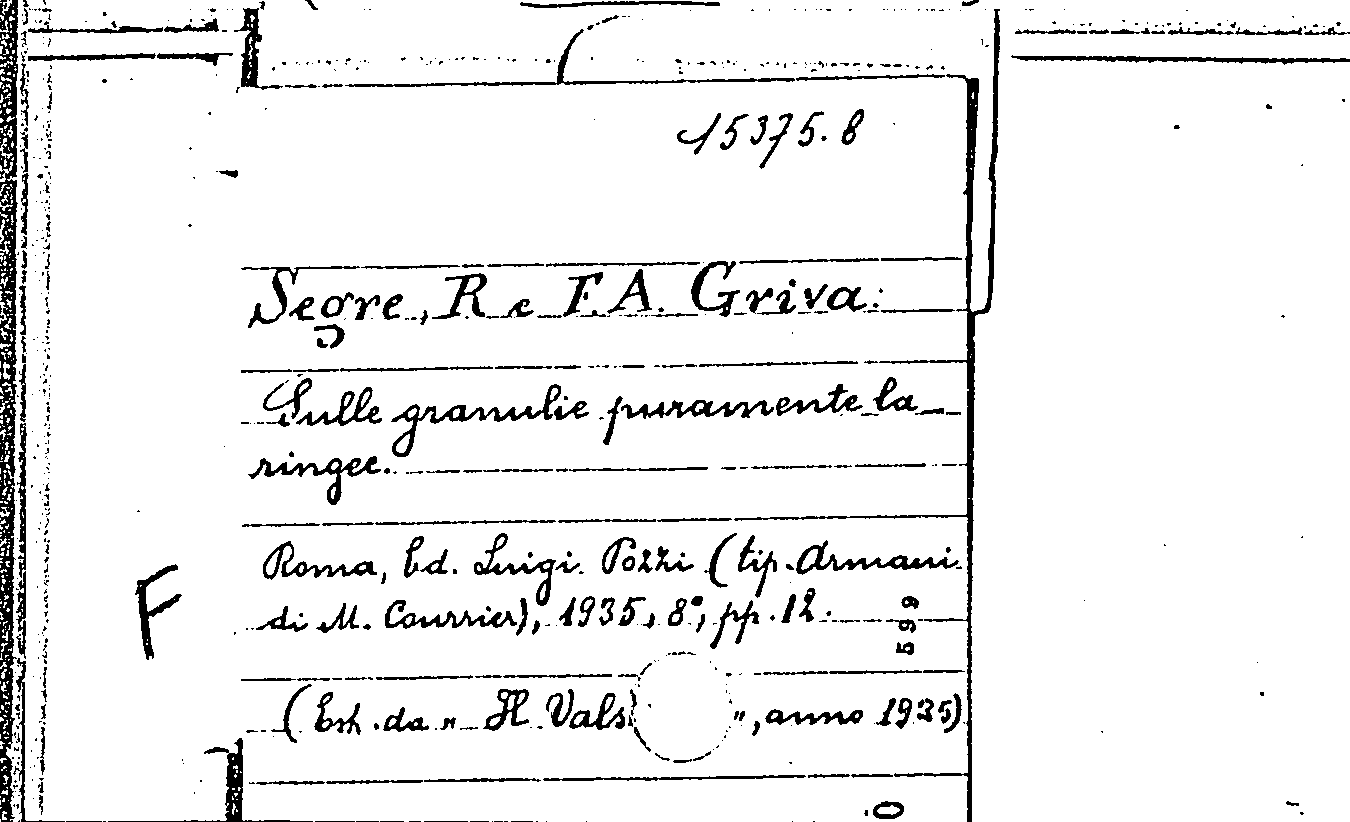 15375.8
Segre, R e F. A. Griva:
Sulle granulie puramente la_
ringee.
Roma, Ed. Luigi Pozzi (tip. Armani
di M. Courrier), 1935, 8°, pp. 12.
599
F
(Estr. da "Il Vals ", anno 1935)